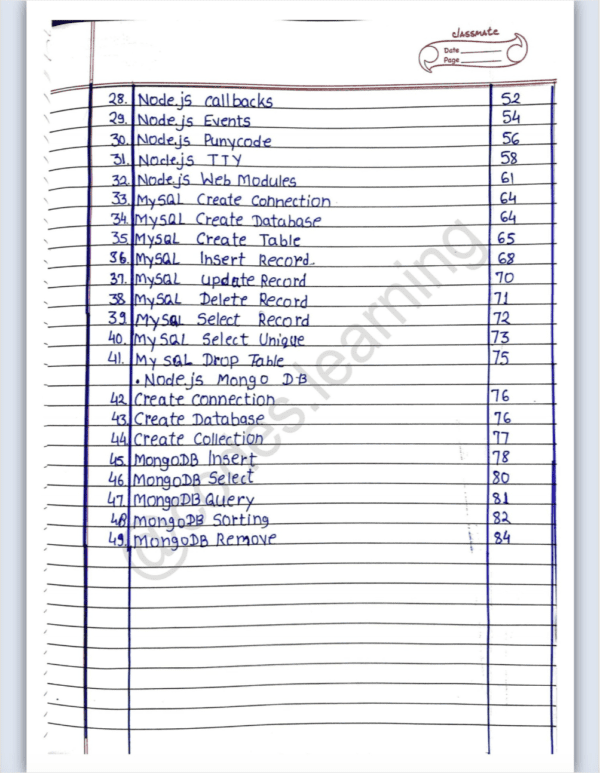 classmate
Date
Page
28. Node.js callbacks 52
29. Node.js Events 54
30. Node.js Punycode 56
31. Node.js TTY 58
32. Node.js Web Modules 61
33. MySQL Create Connection 64
34. MySQL Create Database 64
35 MySQL Create Table 65
36. MySQL Insert Record. 68
37. MySQL update Record 70
38. MySQL Delete Record 71
39. MySQL Select Record 72
40. MySQL Select Unique 73
41. My SQL Drop Table 75
• Node.js Mongo DB
42. Create connection 76
43. Create Database 76
44. Create Collection 77
45. MongoDB Insert 78
46. MongoDB Select 80
47. MongoDB Query 81
48. MongoDB Sorting 82
49. MongoDB Remove 84
@codes.learning